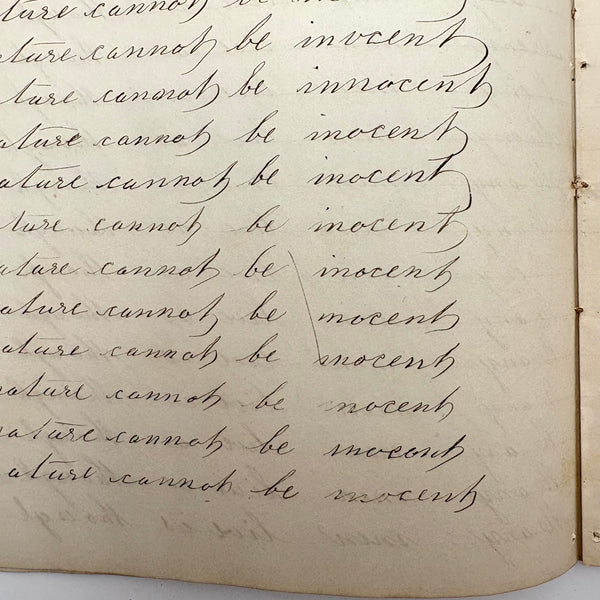 ature cannot be
ature cannot be invcent
ature cannot be innocent
ature cannot be inocent
ature cannot be inocent
ture cannot be inocent
ature cannot be inocent
ature cannot be inocent
ature cannot be inocent
nature cannot be inocent
nature cannot be inocent
ature cannot be inocent